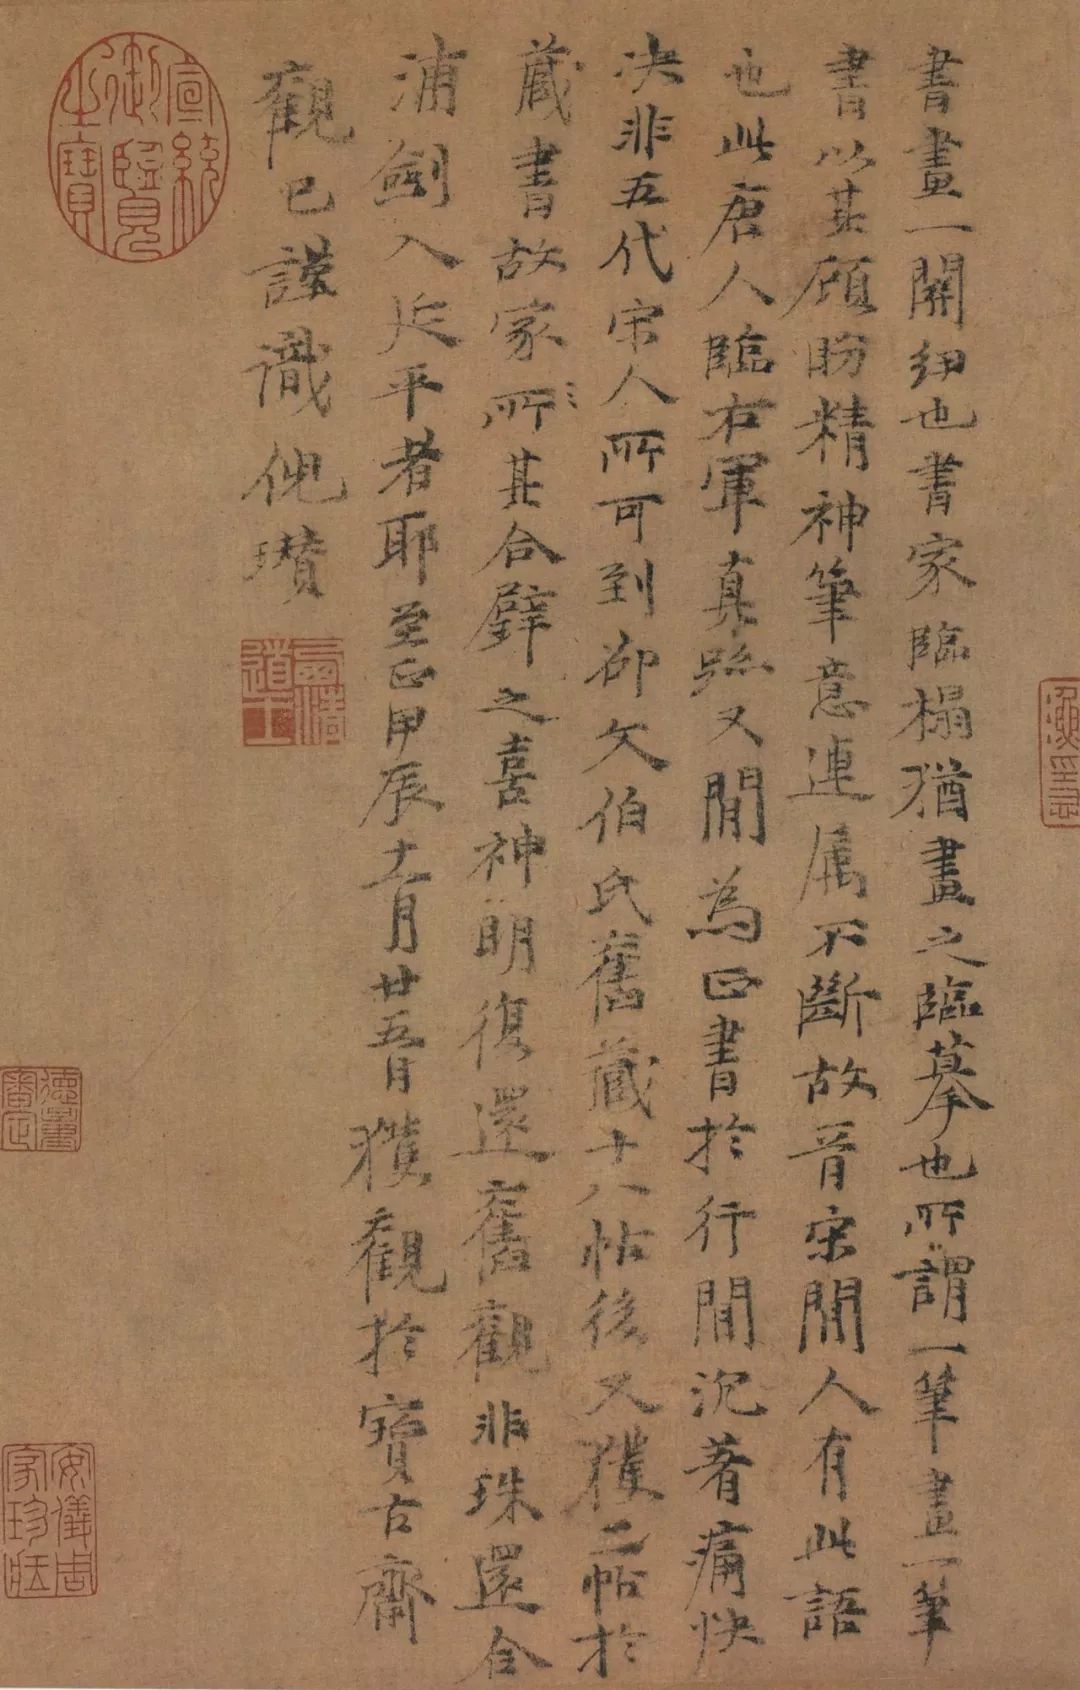 書畫一關紐也書家臨榻猶畫之臨摹也所謂一筆畫一筆
書以其顧盼精神筆意連属不斷故晉宋間人有此語
也此唐人臨右軍真跡又間為正書於行間沉著痛快
决非五代宋人所可到卻文伯氏舊藏十八帖後又獲二帖於
藏書故家所其合璧之喜神明復還舊觀非珠還合
浦劒入延平者耶至正甲辰十一月廿五日獲觀於寶古齋
觀已謹識倪瓚
宣統御覽之寶
安儀周家珍藏